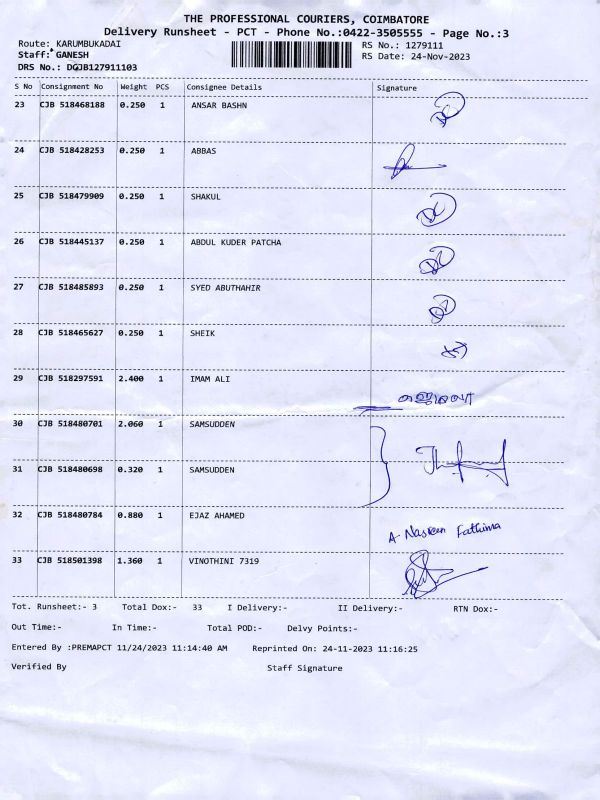 THE PROFESSIONAL COURIERS, COIMBATORE
Delivery Runsheet - PCT - Phone No.:0422-3505555 - Page No.:3
Route: KARUMBUKADAI RS No.: 1279111
Staff: GANESH RS Date: 24-Nov-2023
DRS No.: DGJB127911103
S No Consignment No Weight PCS Consignee Details Signature
23 CJB 518468188 0.250 1 ANSAR BASHN
24 CJB 518428253 0.250 1 ABBAS
25 CJB 518479909 0.250 1 SHAKUL
26 CJB 518445137 0.250 1 ABDUL KUDER PATCHA
27 CJB 518485893 0.250 1 SYED ABUTHAHIR
28 CJB 518465627 0.250 1 SHEIK
29 CJB 518297591 2.400 1 IMAM ALI
30 CJB 518480701 2.060 1 SAMSUDDEN
31 CJB 518480698 0.320 1 SAMSUDDEN
32 CJB 518480784 0.880 1 EJAZ AHAMED A. Nasreen Fathima
33 CJB 518501398 1.360 1 VINOTHINI 7319
Tot. Runsheet:- 3 Total Dox:- 33 I Delivery:- II Delivery:- RTN Dox:-
Out Time:- In Time:- Total POD:- Delvy Points:-
Entered By :PREMAPCT 11/24/2023 11:14:40 AM Reprinted On: 24-11-2023 11:16:25
Verified By Staff Signature